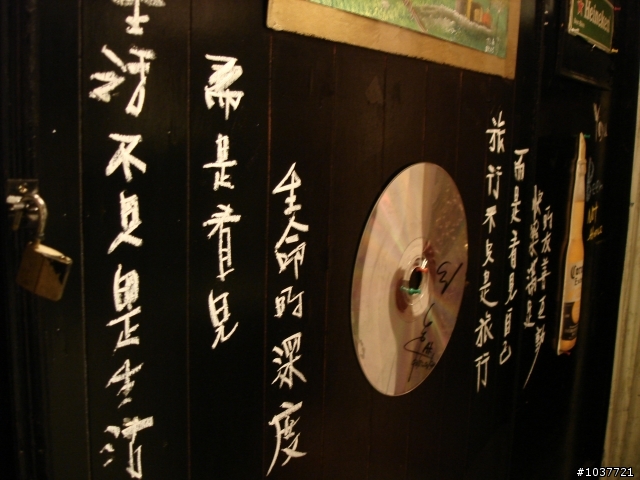 生活不只是生活
而是看見
生命的深度
旅行不只是旅行
而是看見自己
Heineken
You
Corona
#1037721